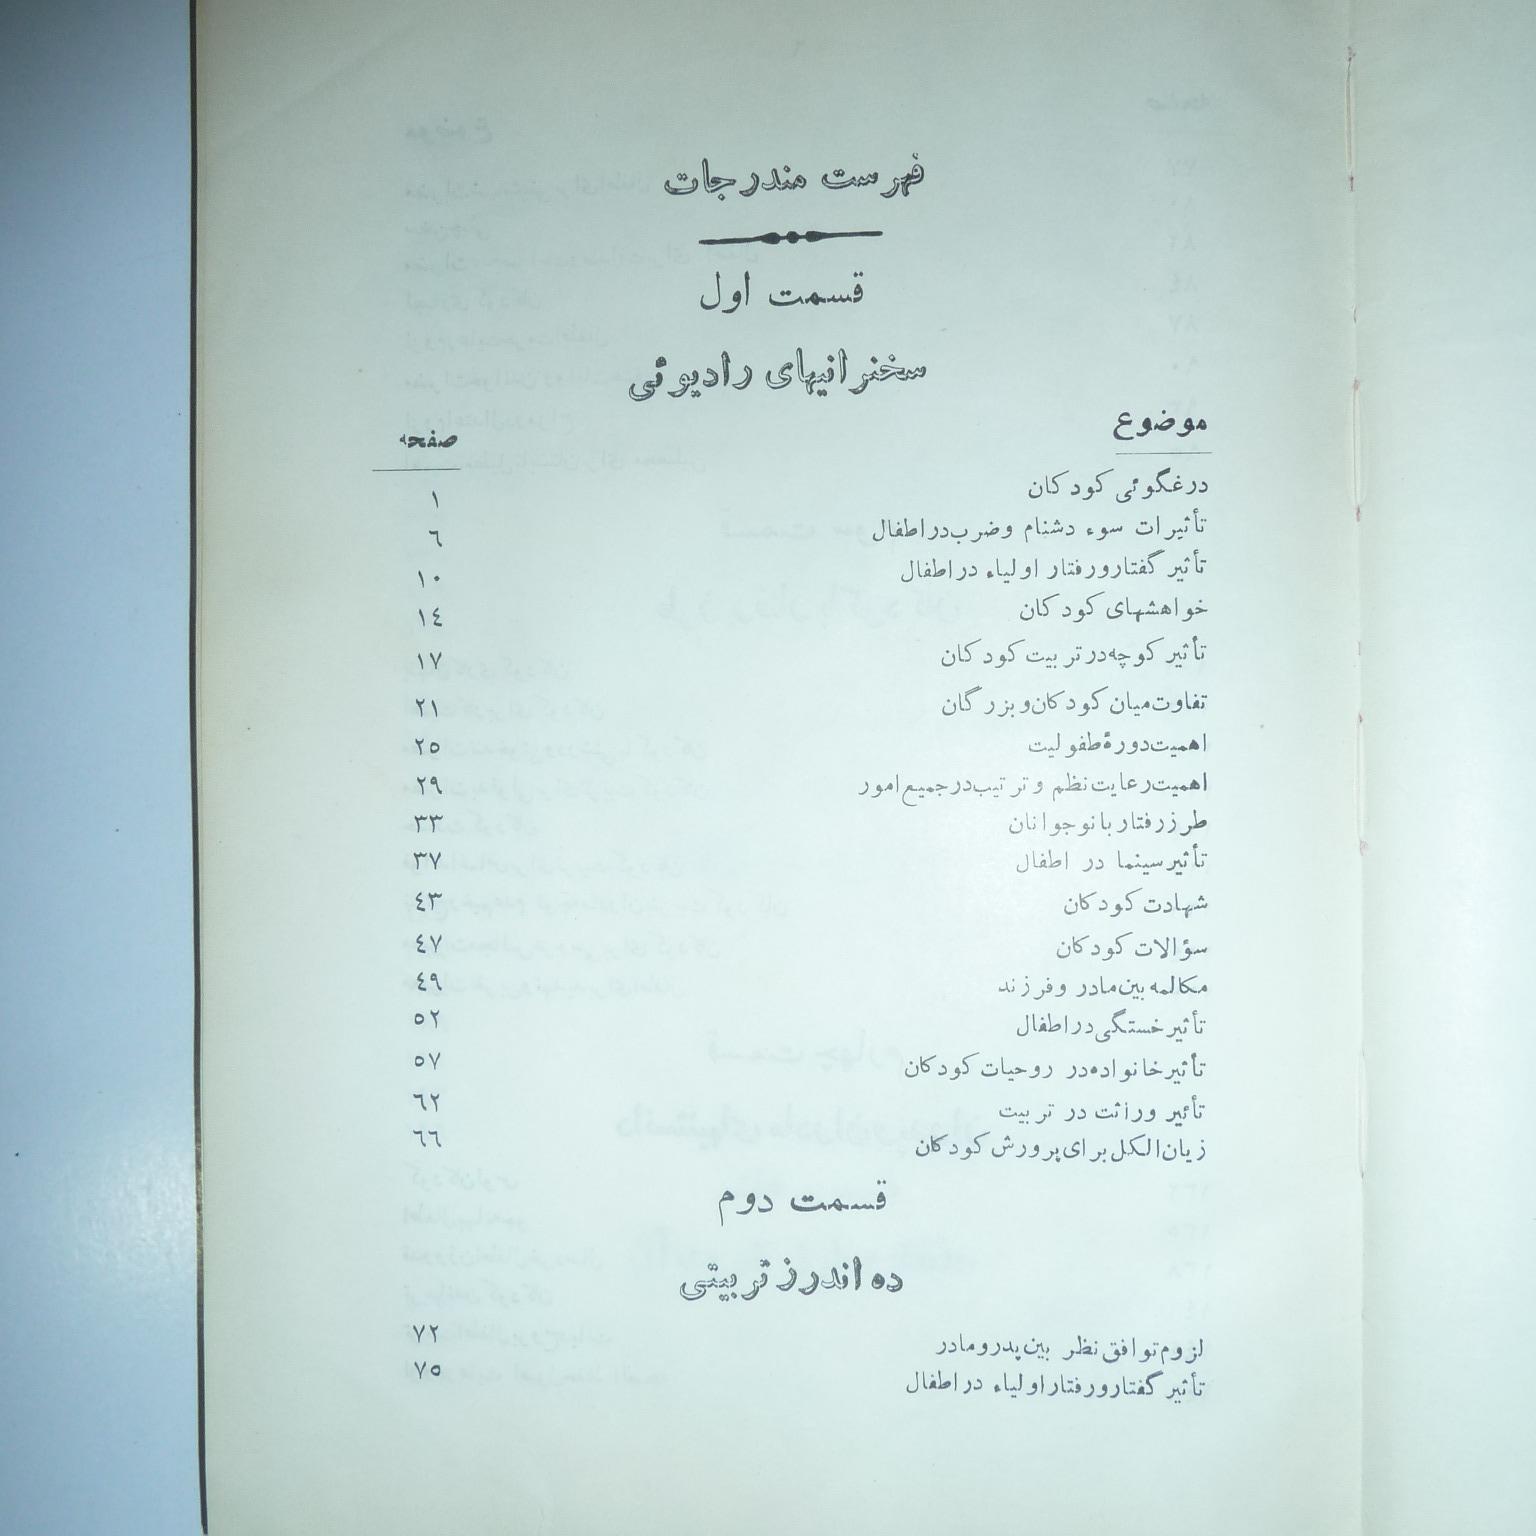 فهرست مندرجات
قسمت اول
سخنرانیهای رادیوئی
موضوع صفحه
درغگوئی کودکان ۱
تأثیرات سوء دشنام وضرب در اطفال ٦
تأثیر گفتار ورفتار اولیاء در اطفال ۱۰
خواهشهای کودکان ۱٤
تأثیر کوچه در تربیت کودکان ۱۷
تفاوت میان کودکان و بزرگان ۲۱
اهمیت دورهٔ طفولیت ۲٥
اهمیت رعایت نظم و ترتیب در جمیع امور ۲۹
طرز رفتار با نوجوانان ۳۳
تأثیر سینما در اطفال ۳۷
شهادت کودکان ٤۳
سؤالات کودکان ٤۷
مکالمه بین مادر و فرزند ٤۹
تأثیر خستگی در اطفال ٥۲
تأثیر خانواده در روحیات کودکان ٥۷
تأثیر وراثت در تربیت ٦۲
زیان الکل برای پرورش کودکان ٦٦
قسمت دوم
ده اندرز تربیتی
لزوم توافق نظر بین پدر و مادر ۷۲
تأثیر گفتار و رفتار اولیاء در اطفال ۷٥